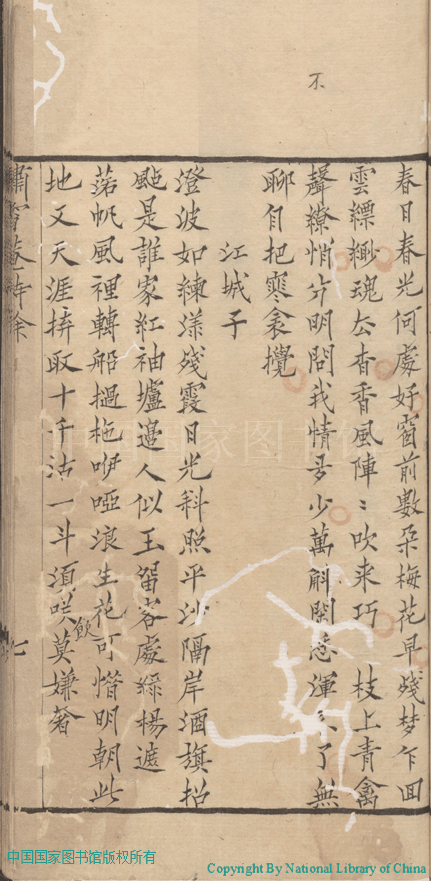 不
春日春光何處好窗前數朵梅花早殘梦乍回
雲縹緲魂去杳香風陣〻吹来巧　枝上青禽
聲繚悄分明問我情多少萬斛閑愁渾未了無
聊自把寒衾攪
江城子
澄波如練漾殘霞日光斜照平沙隔岸酒旗招
颭是誰家紅袖壚邊人似玉留客處綠楊遮
蒲帆風裡轉船撾柂咿啞浪生花可惜明朝此
地又天涯拚取十千沽一斗須
飲
莫嫌奢
詩餘
七
中国国家图书馆
中国国家图书馆版权所有
Copyright By National Library of China